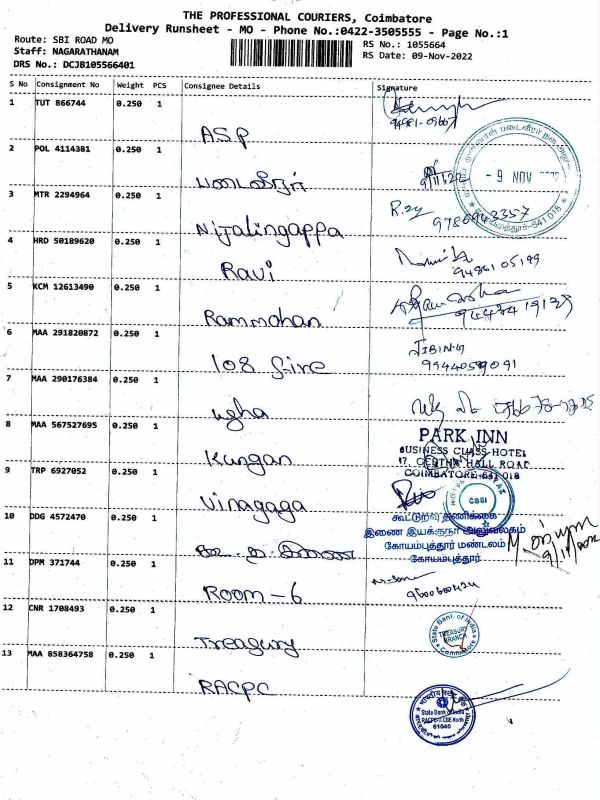 THE PROFESSIONAL COURIERS, Coimbatore
Delivery Runsheet - MO - Phone No.:0422-3505555 - Page No.:1
Route: SBI ROAD MO
RS No.: 1055664
Staff: NAGARATHANAM
RS Date: 09-Nov-2022
DRS No.: DCJB105566401
S No Consignment No Weight PCS Consignee Details Signature
1 TUT 866744 0.250 1
A.S.P
2 POL 4114381 0.250 1
படைவீரர்
- 9 NOV
3 MTR 2294964 0.250 1
Nijalingappa
9786943357
4 HRD 50189620 0.250 1
Ravi
9486105199
5 KCM 12613490 0.250 1
Rammohan
6 MAA 291820872 0.250 1
108 fire
JIBIN.G
9944059091
7 MAA 290176384 0.250 1
ugha
8 MAA 567527695 0.250 1
Kungan
PARK INN
BUSINESS CLASS HOTEL
17, GEETHA HALL ROAD
COIMBATORE-641 018
9 TRP 6927052 0.250 1
Vinagaga
CBSI
10 DDG 4572470 0.250 1
கூட்டுறவு தணிக்கை
இணை இயக்குநர் அலுவலகம்
கோயம்புத்தூர் மண்டலம்
கோயம்புத்தூர்
11 DPM 371744 0.250 1
ROOM - 6
9600600424
12 CNR 1708493 0.250 1
Treagury
State Bank of India
TREASURY
BRANCH
Coimbatore
13 MAA 858364758 0.250 1
RACPC
भारतीय स्टेट बैंक
State Bank of India
RACPC-II CBE North
61040